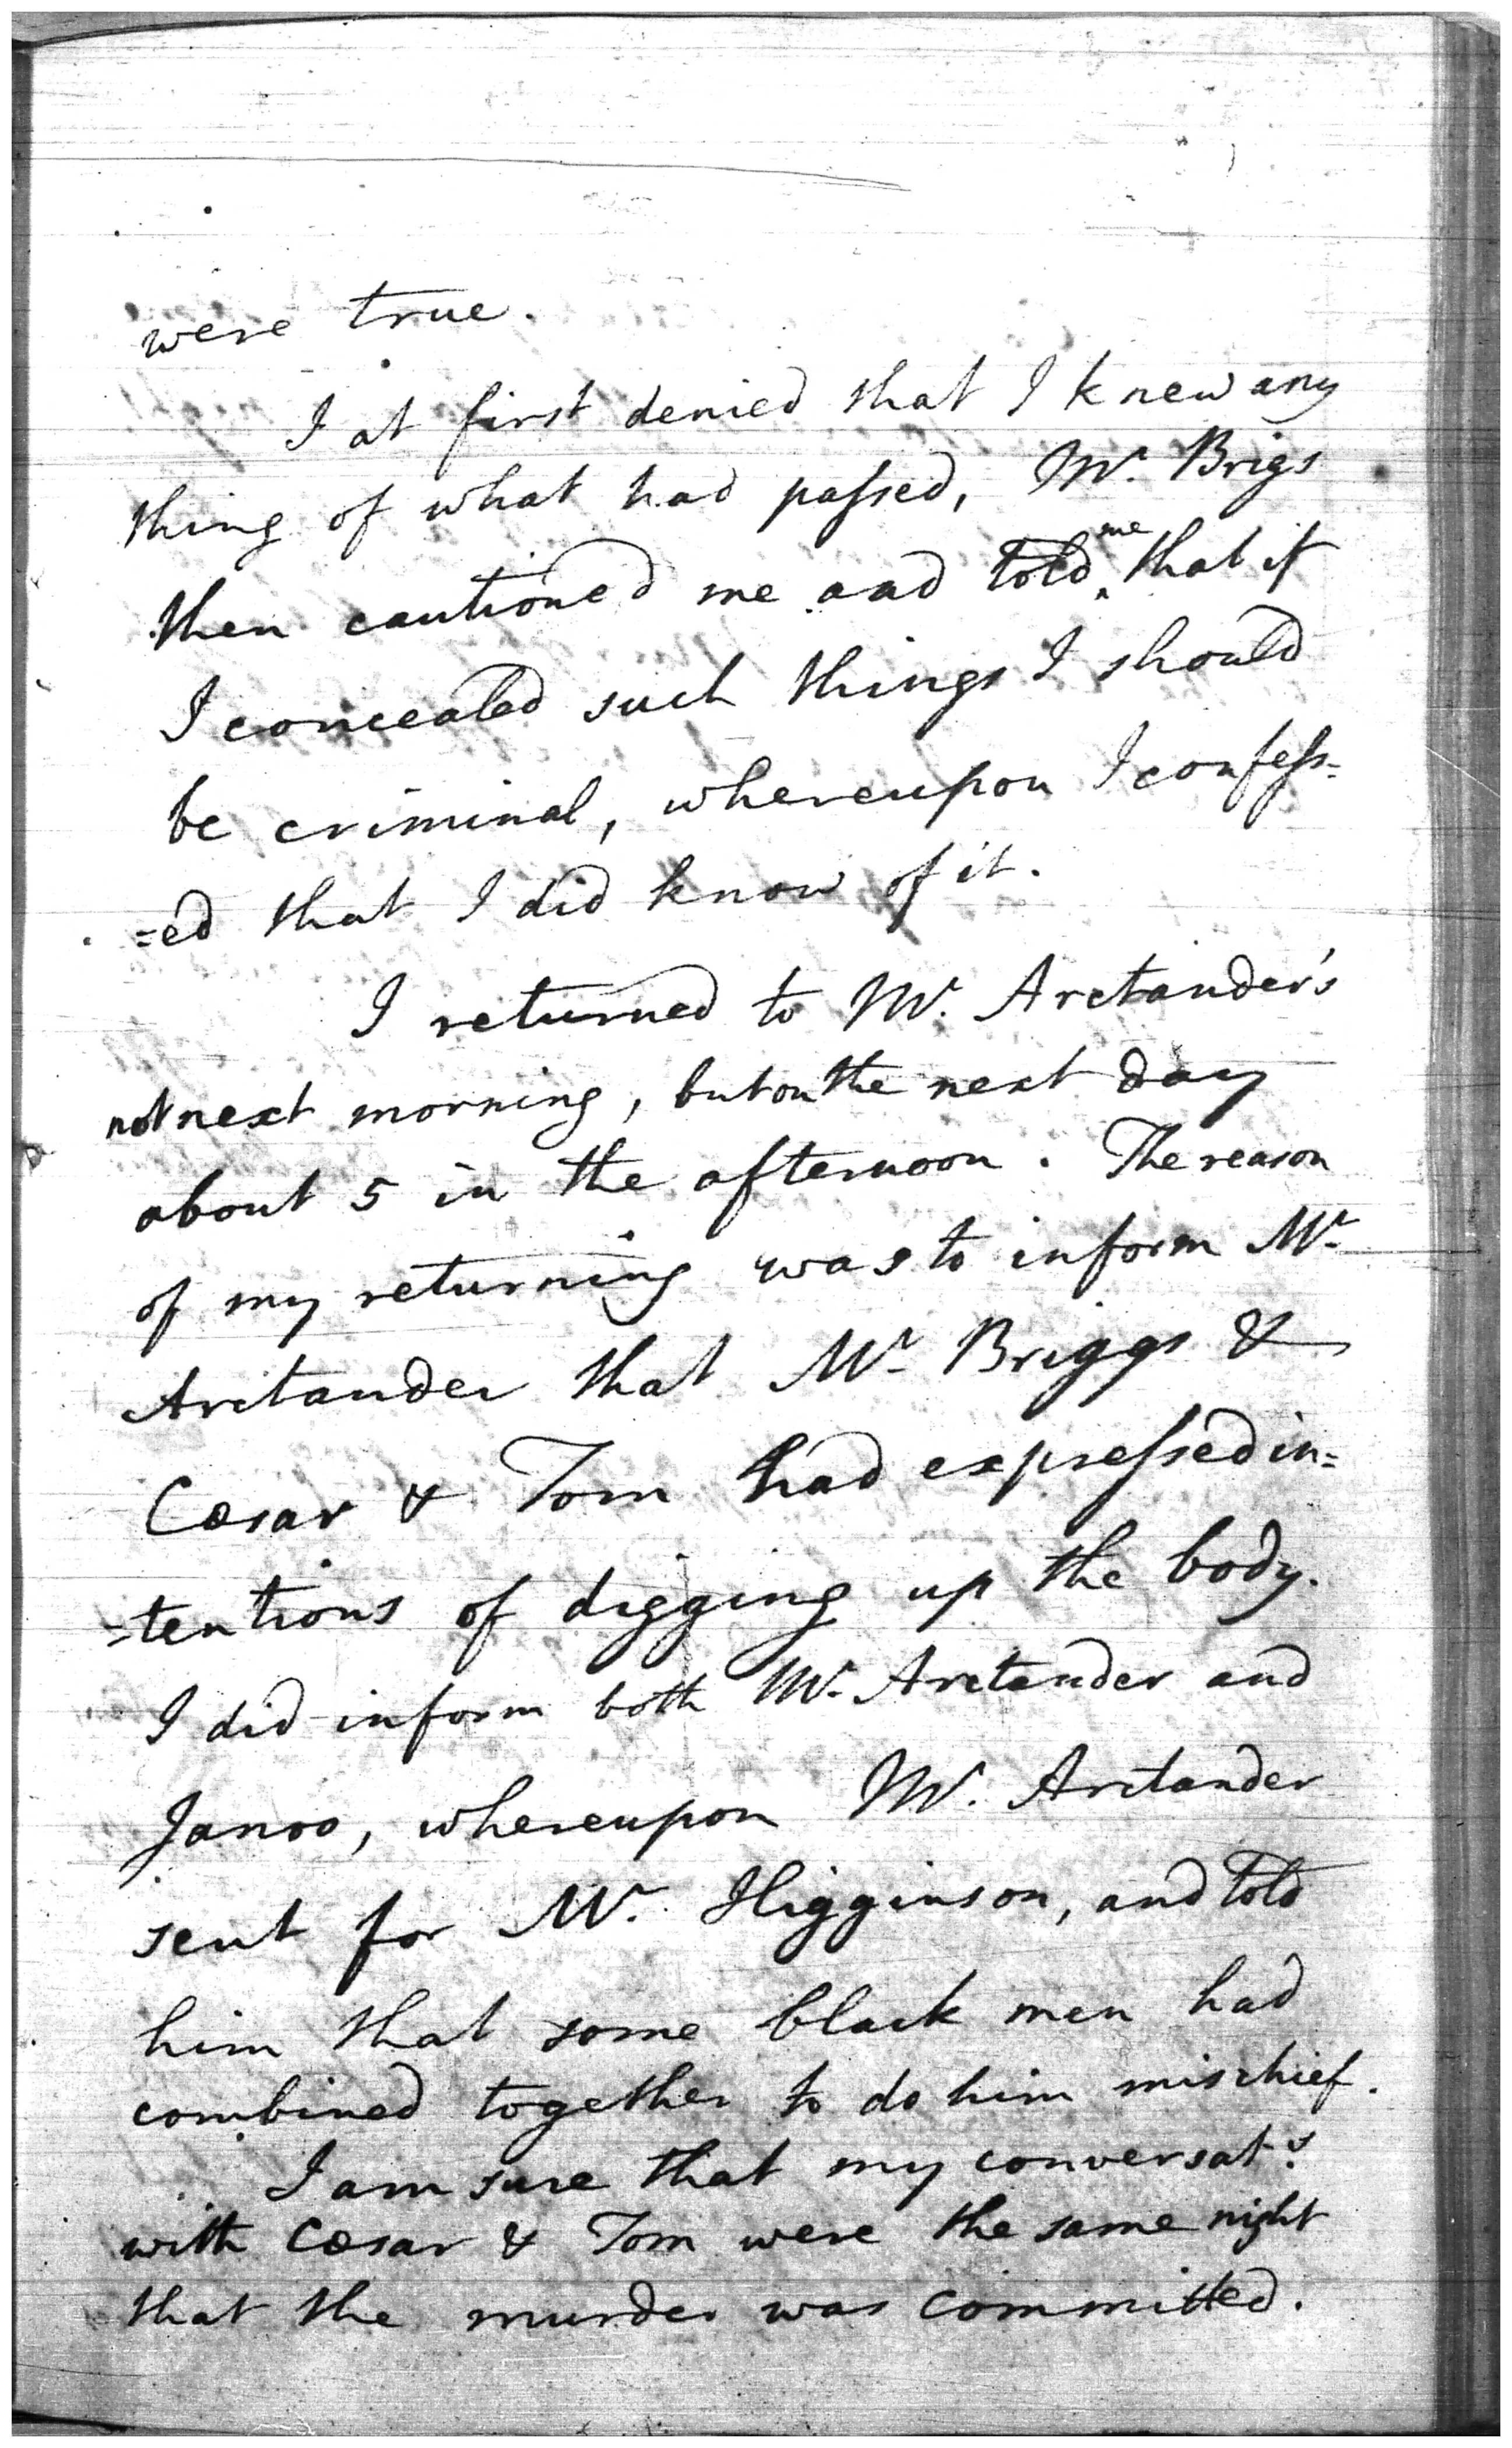 were true.
I at first denied that I knew any
thing of what had passed, Mr. Brigs
then cautioned me and told me that if
I concealed such things I should
be criminal, whereupon I confess=
=ed that I did know of it.
I returned to Mr. Arctander's
not next morning, but on the next day
about 5 in the afternoon. The reason
of my returning was to inform Mr.
Arctander that Mr. Briggs &
Cæsar & Tom had expressed in=
=tentions of digging up the body.
I did inform both Mr. Arctander and
Janoo, whereupon Mr. Arctander
sent for Mr. Higginson, and told
him that some black men had
combined together to do him mischief.
I am sure that my conversat.s
with Cæsar & Tom were the same night
that the murder was committed.